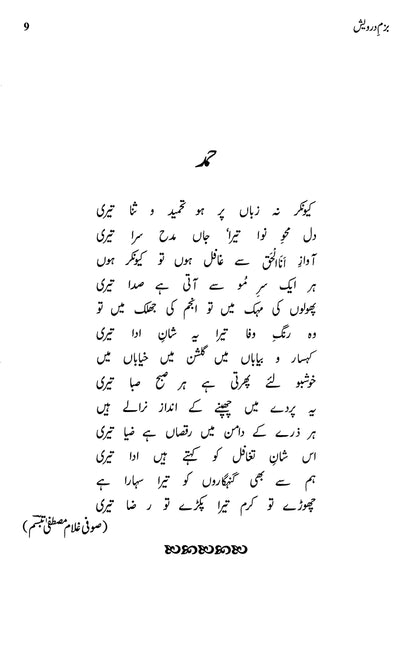 بزمِ درویش
9
حمد
کیونکر نہ زباں پر ہو تحمید و ثنا تیری
دل محوِ نوا تیرا، جاں مدح سرا تیری
آوازِ اَنَاالْحَق سے غافل ہوں تو کیونکر ہوں
ہر ایک سرِ مُو سے آتی ہے صدا تیری
پھولوں کی مہک میں تو انجم کی جھلک میں تو
وہ رنگِ وفا تیرا یہ شانِ ادا تیری
کہسار و بیاباں میں گلشن میں خیاباں میں
خوشبو لئے پھرتی ہے ہر صبح صبا تیری
یہ پردے میں چھپنے کے انداز نرالے ہیں
ہر ذرے کے دامن میں رقصاں ہے ضیا تیری
اس شانِ تغافل کو کہتے ہیں ادا تیری
ہم سے بھی گنہگاروں کو تیرا سہارا ہے
چھوڑے تو کرم تیرا پکڑے تو ر ضا تیری
(صوفی غلام مصطفیٰ تبسم)